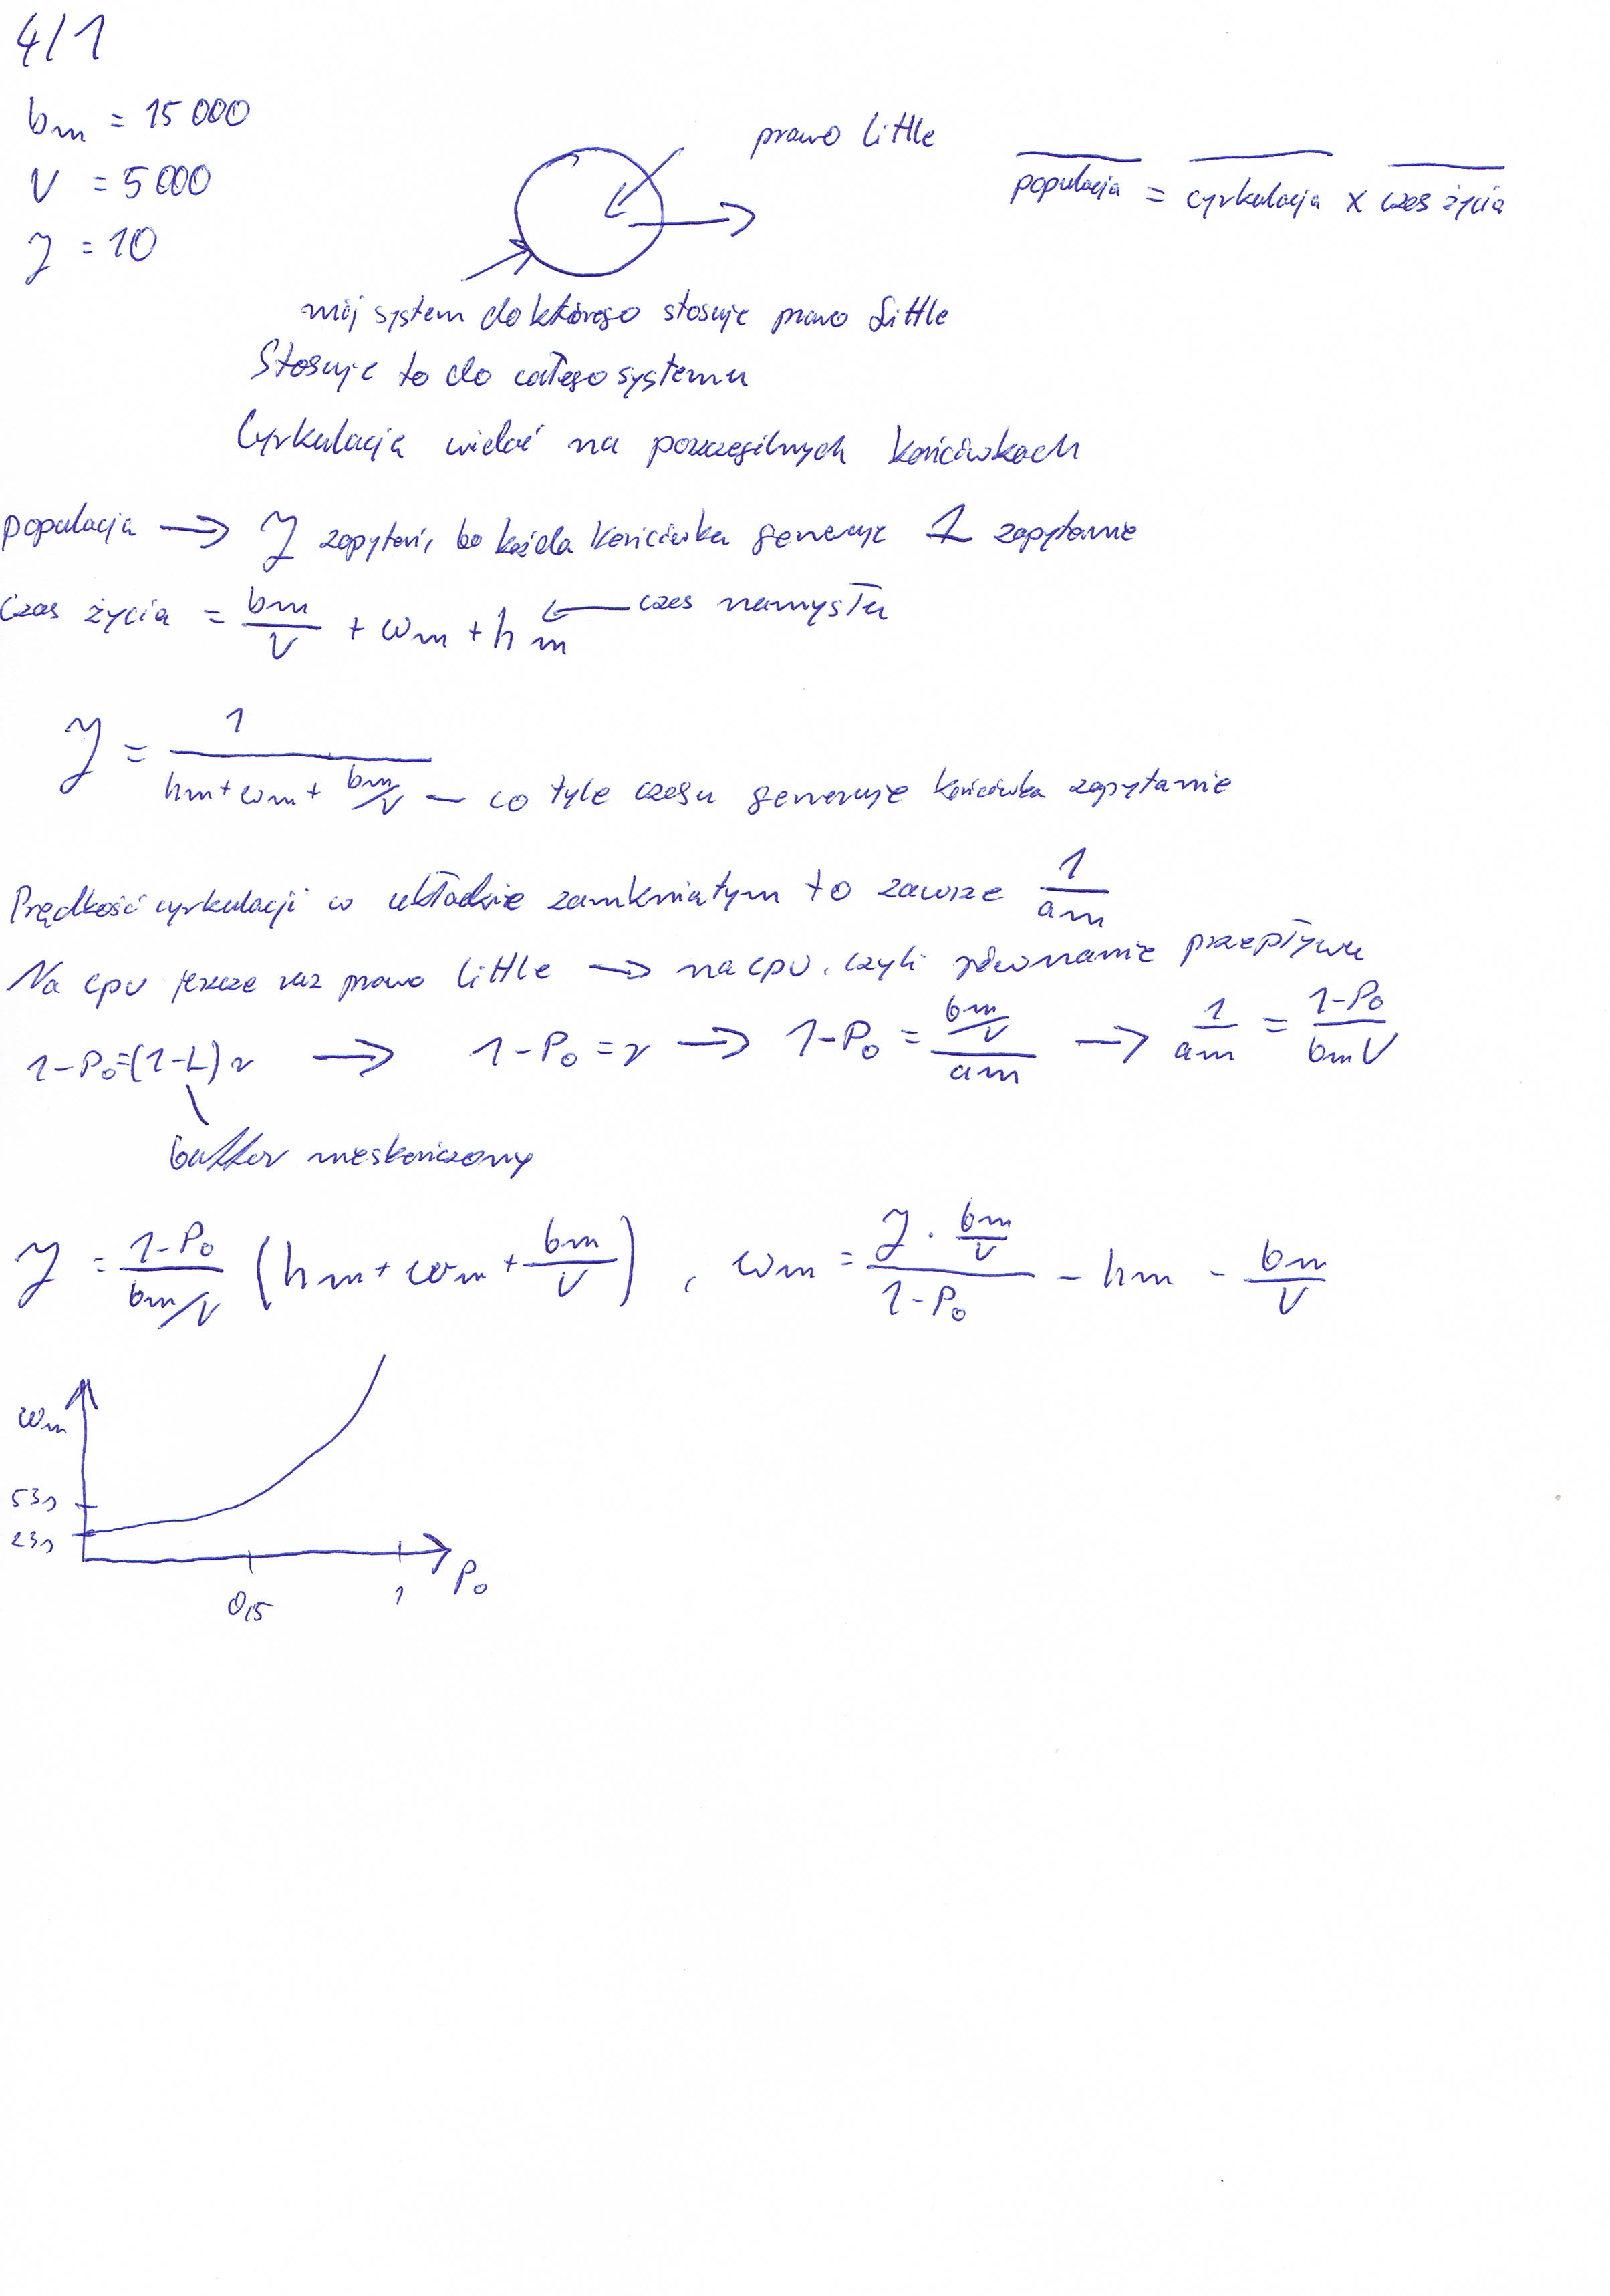 4/1
bm = 15 000
V = 5 000
J = 10
prawo little
populacja = cyrkulacja x czas życia
mój system do którego stosuje prawo Little
Stosuje to do całego systemu
Cyrkulacja widać na poszczególnych końcówkach
populacja → J zapytań, bo każda końcówka generuje 1 zapytanie
czas życia = bm/V + wm + hm ← czas namysłu
J = 1/(hm + wm + bm/V) — co tyle czasu generuje końcówka zapytanie
Prędkość cyrkulacji w układzie zamkniatym to zawsze 1/am
Na cpu jeszcze raz prawo little → na cpu, czyli równanie przepływu
1-P₀=(1-L)r → 1-P₀ = r → 1-P₀ = (bm/V)/am → 1/am = (1-P₀)/(bm V)
buffor nieskończony
J = (1-P₀)/(bm/V) (hm + wm + bm/V), wm = (J · bm/V)/(1-P₀) - hm - bm/V
wm
53s
23s
0,5
1
P₀